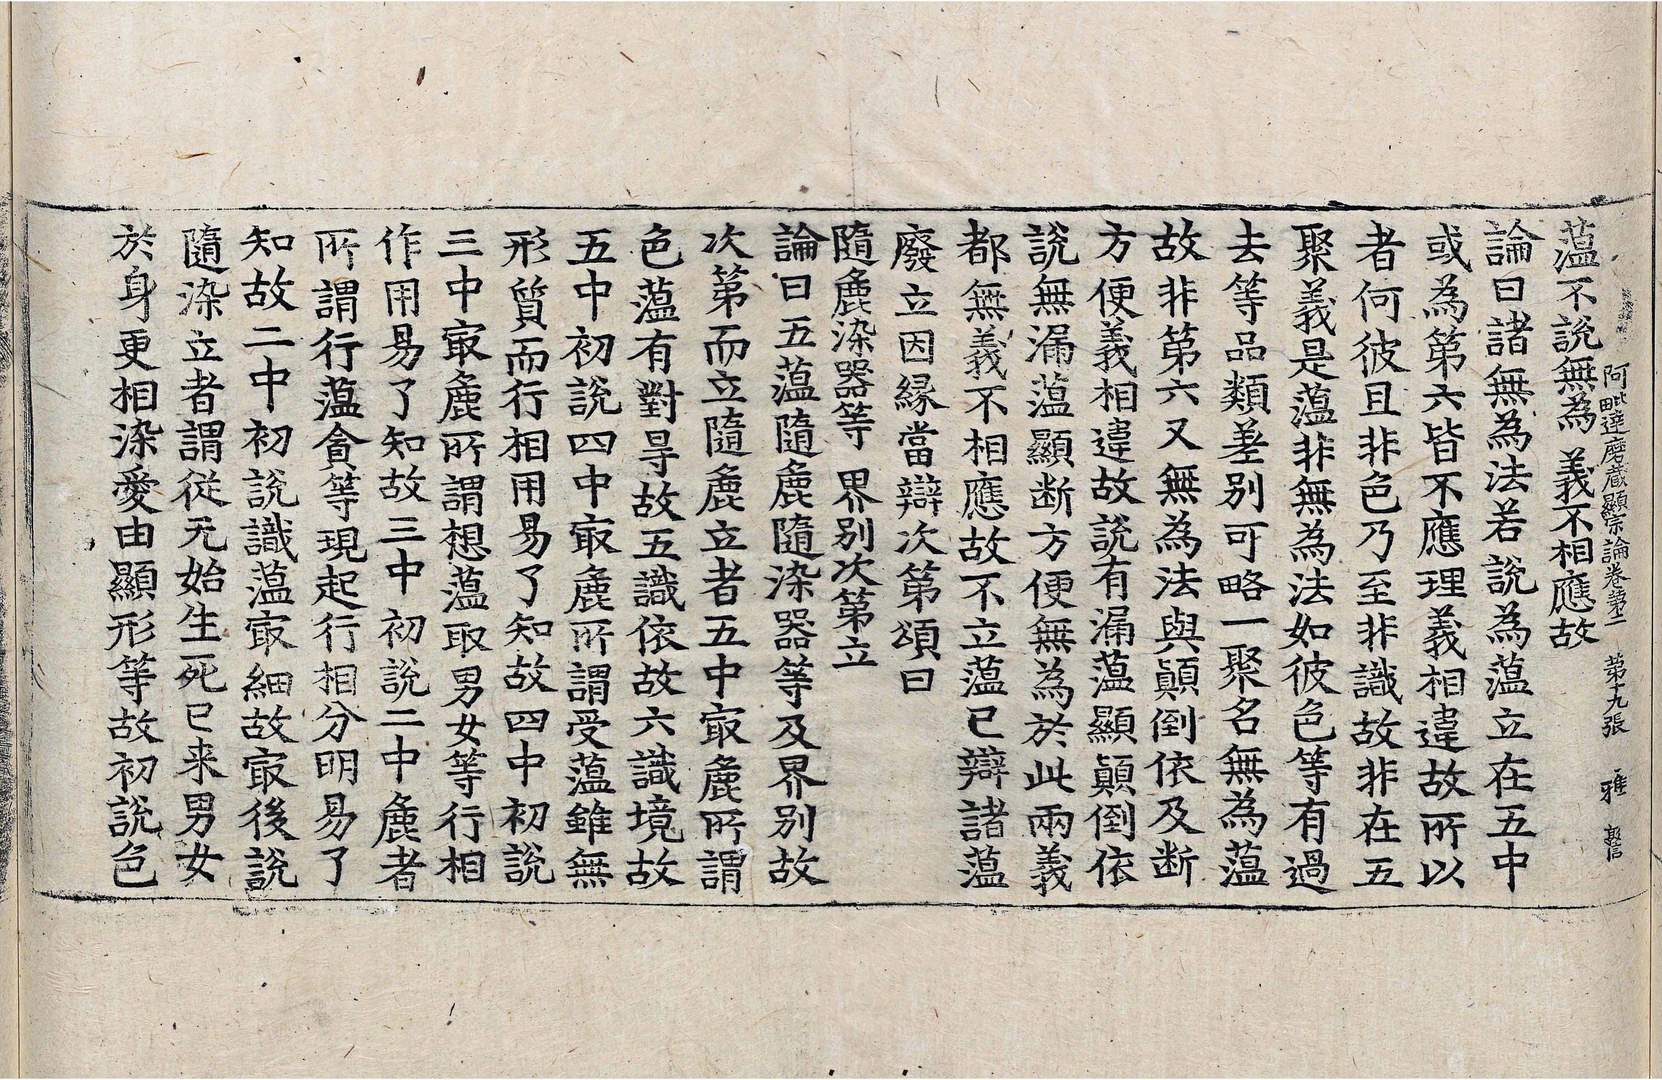 阿毗達磨蔵顯宗論卷第二　第十九張　雅　郭信
蕰不說無為　義不相應故
論曰諸無為法若說為蕰立在五中
或為第六皆不應理義相違故所以
者何彼且非色乃至非識故非在五
聚義是蕰非無為法如彼色等有過
去等品類差別可略一聚名無為蕰
故非第六又無為法與顛倒依及断
方便義相違故說有漏蕰顯顛倒依
說無漏蕰顯断方便無為於此兩義
都無義不相應故不立蕰已辯諸蕰
廢立因緣當辯次第頌曰
隨麁染器等　界別次第立
論曰五蕰隨麁隨染器等及界別故
次第而立隨麁立者五中㝡麁所謂
色蕰有對㝵故五識依故六識境故
五中初說四中㝡麁所謂受蕰雖無
形質而行相用易了知故四中初說
三中㝡麁所謂想蕰取男女等行相
作用易了知故三中初說二中麁者
所謂行蕰貪等現起行相分明易了
知故二中初說識蕰㝡細故㝡後說
隨染立者謂從无始生死已来男女
於身更相染愛由顯形等故初說色